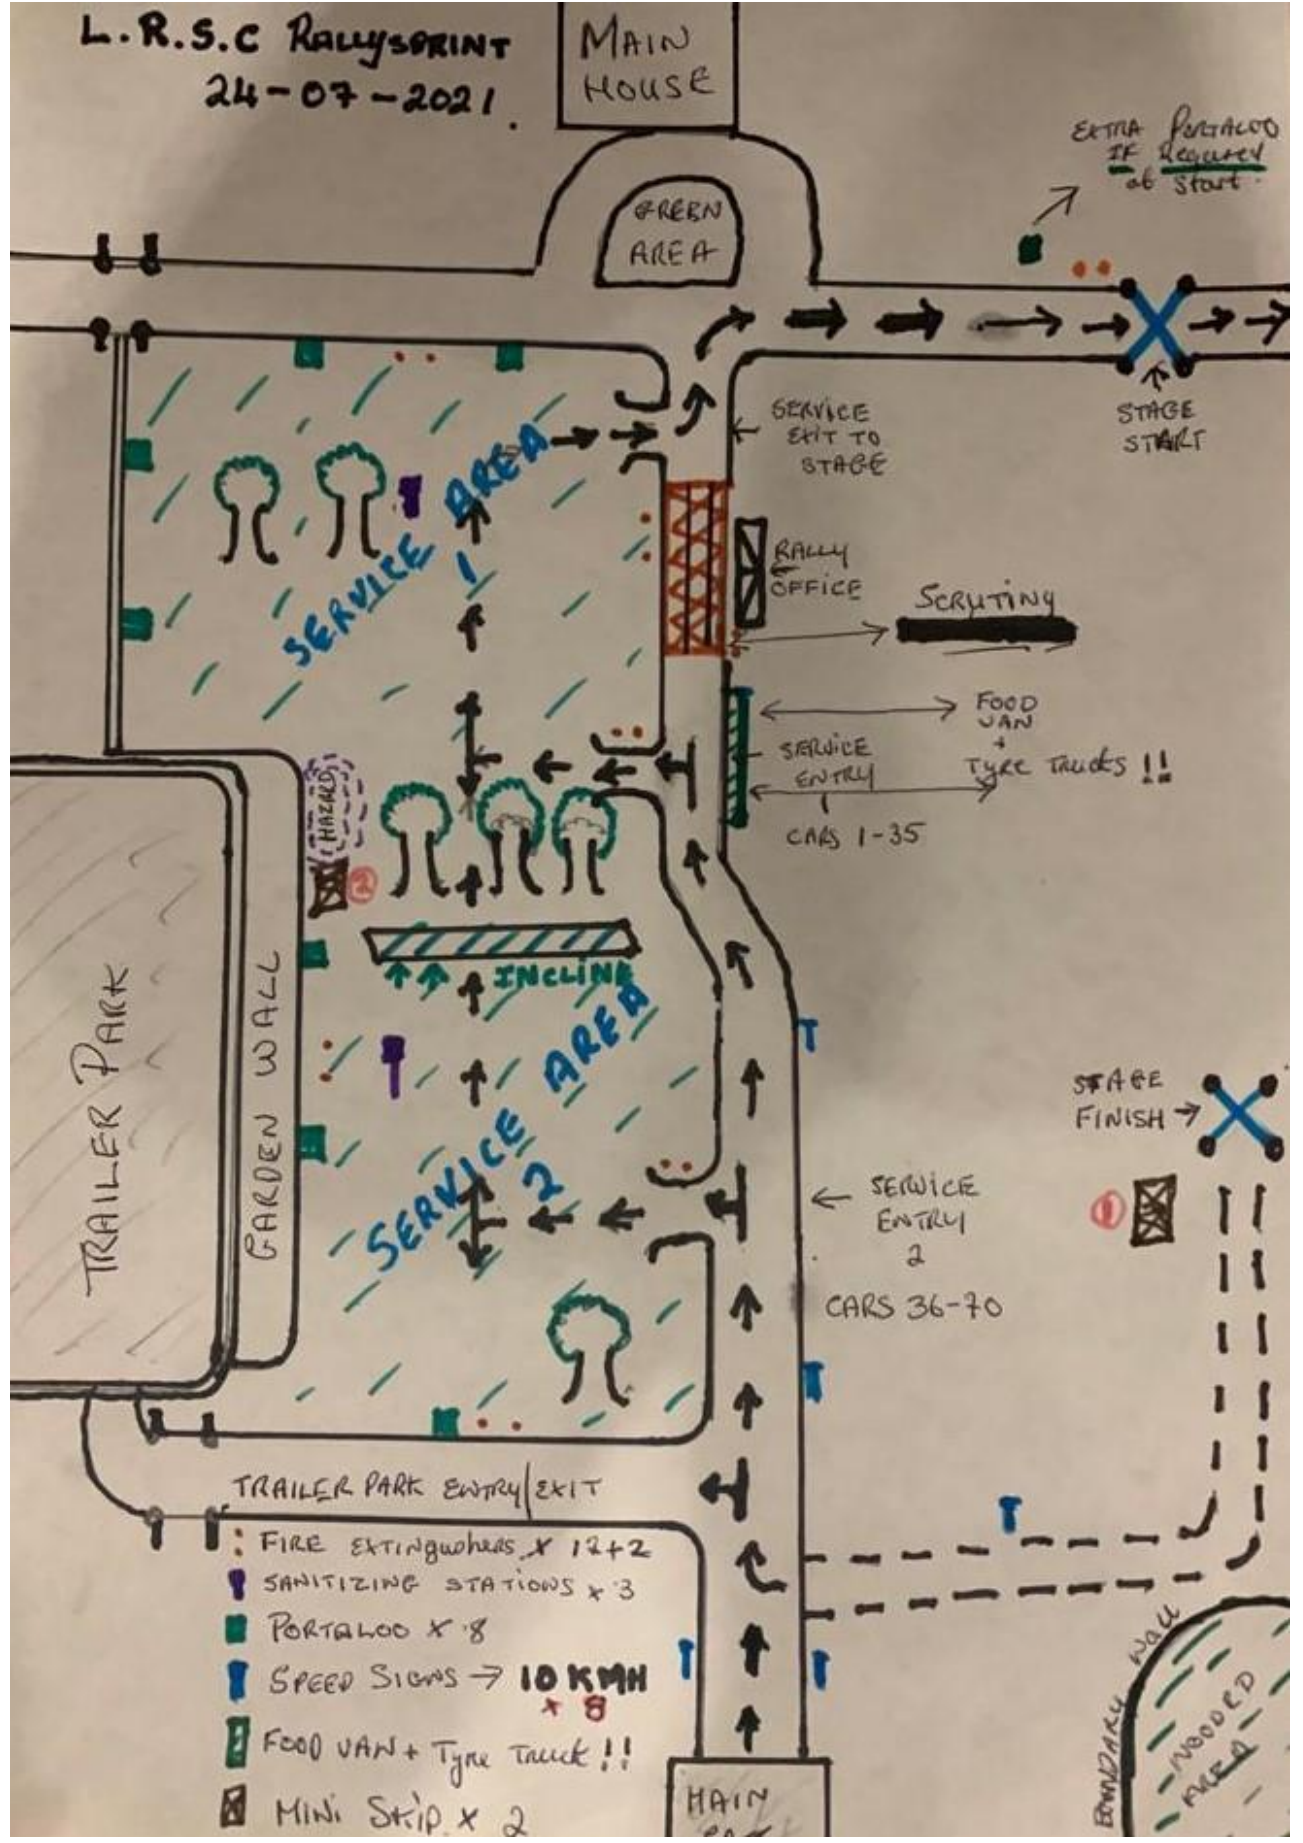 L.R.S.C RALLYSPRINT
24-07-2021.
MAIN
HOUSE
EXTRA PORTALOO
IF Required
at Start.
GREEN
AREA
SERVICE
EXIT TO
STAGE
STAGE
START
SERVICE AREA
1
RALLY
OFFICE
SCRUTINY
FOOD
VAN
+
TYRE TRUCKS !!
SERVICE
ENTRY
1
CARS 1-35
HAZARD
2
INCLINE
TRAILER PARK
GARDEN WALL
SERVICE AREA
2
STAGE
FINISH
1
SERVICE
ENTRY
2
CARS 36-70
TRAILER PARK ENTRY/EXIT
FIRE EXTINguishers x 12+2
SANITIZING STATIONS x 3
PORTALOO x 8
SPEED SIGNS → 10 KMH
x 8
FOOD VAN + Tyre Truck !!
MINI SKIP x 2
MAIN
BOUNDARY Wall
WOODED
AREA